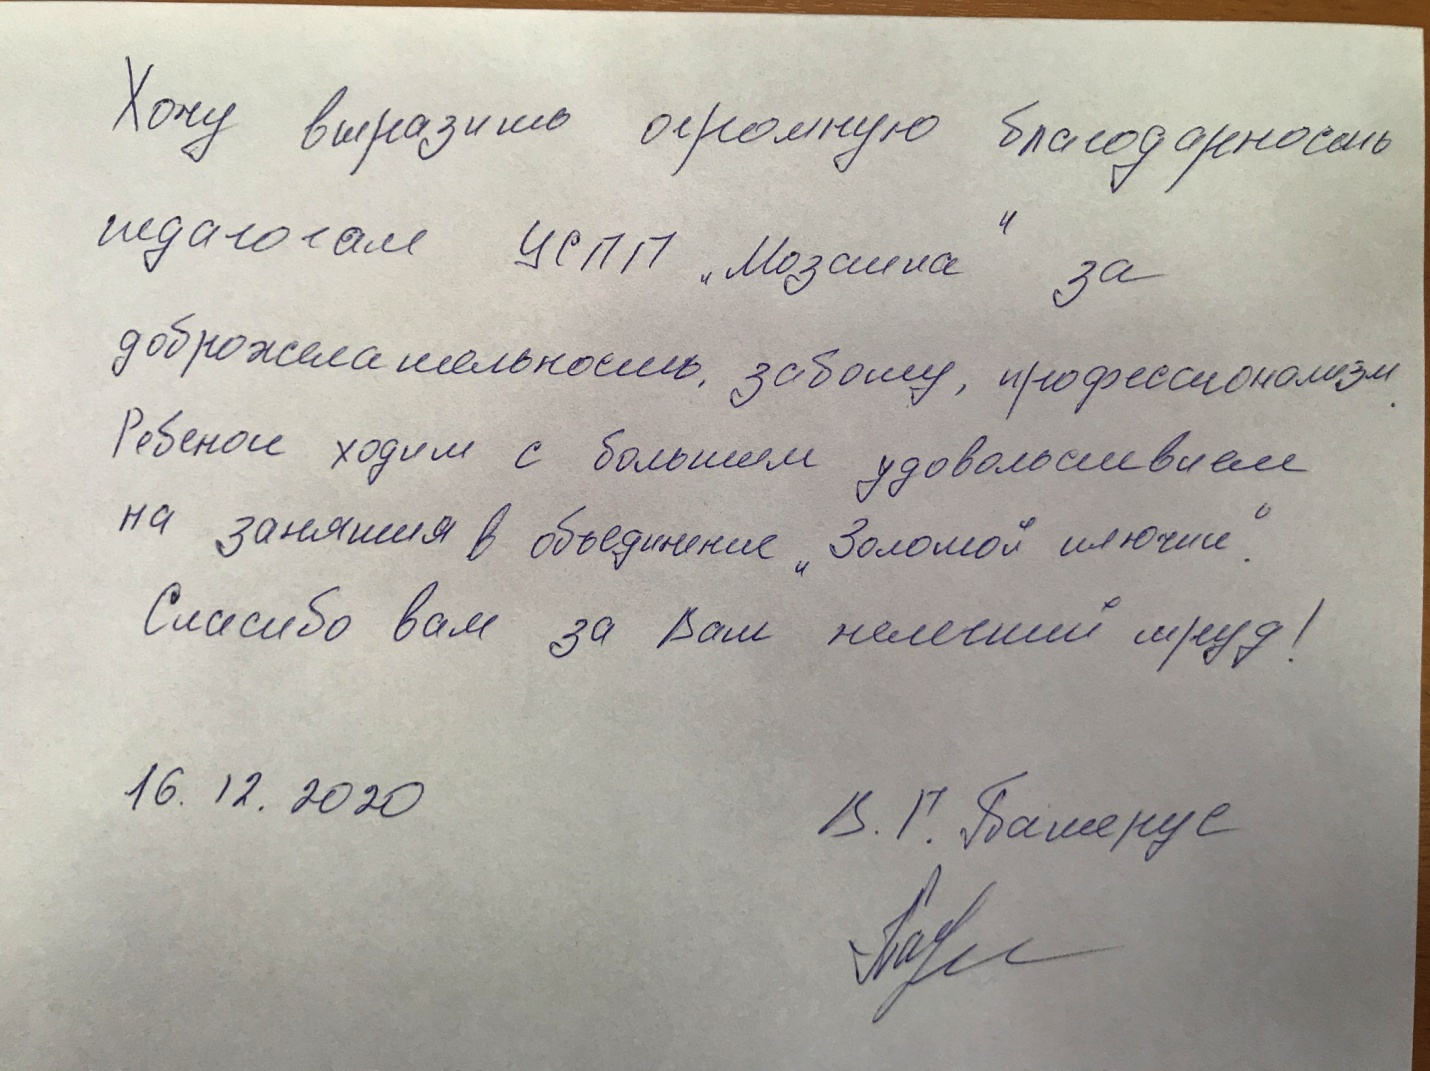 Хочу выразить огромную благодарность
педагогам ЦСПП „Мозаика“ за
доброжелательность, заботу, профессионализм.
Ребенок ходит с большим удовольствием
на занятия в объединение „Золотой ключик“.
Спасибо вам за Ваш нелегкий труд!
16.12.2020
В. Г.